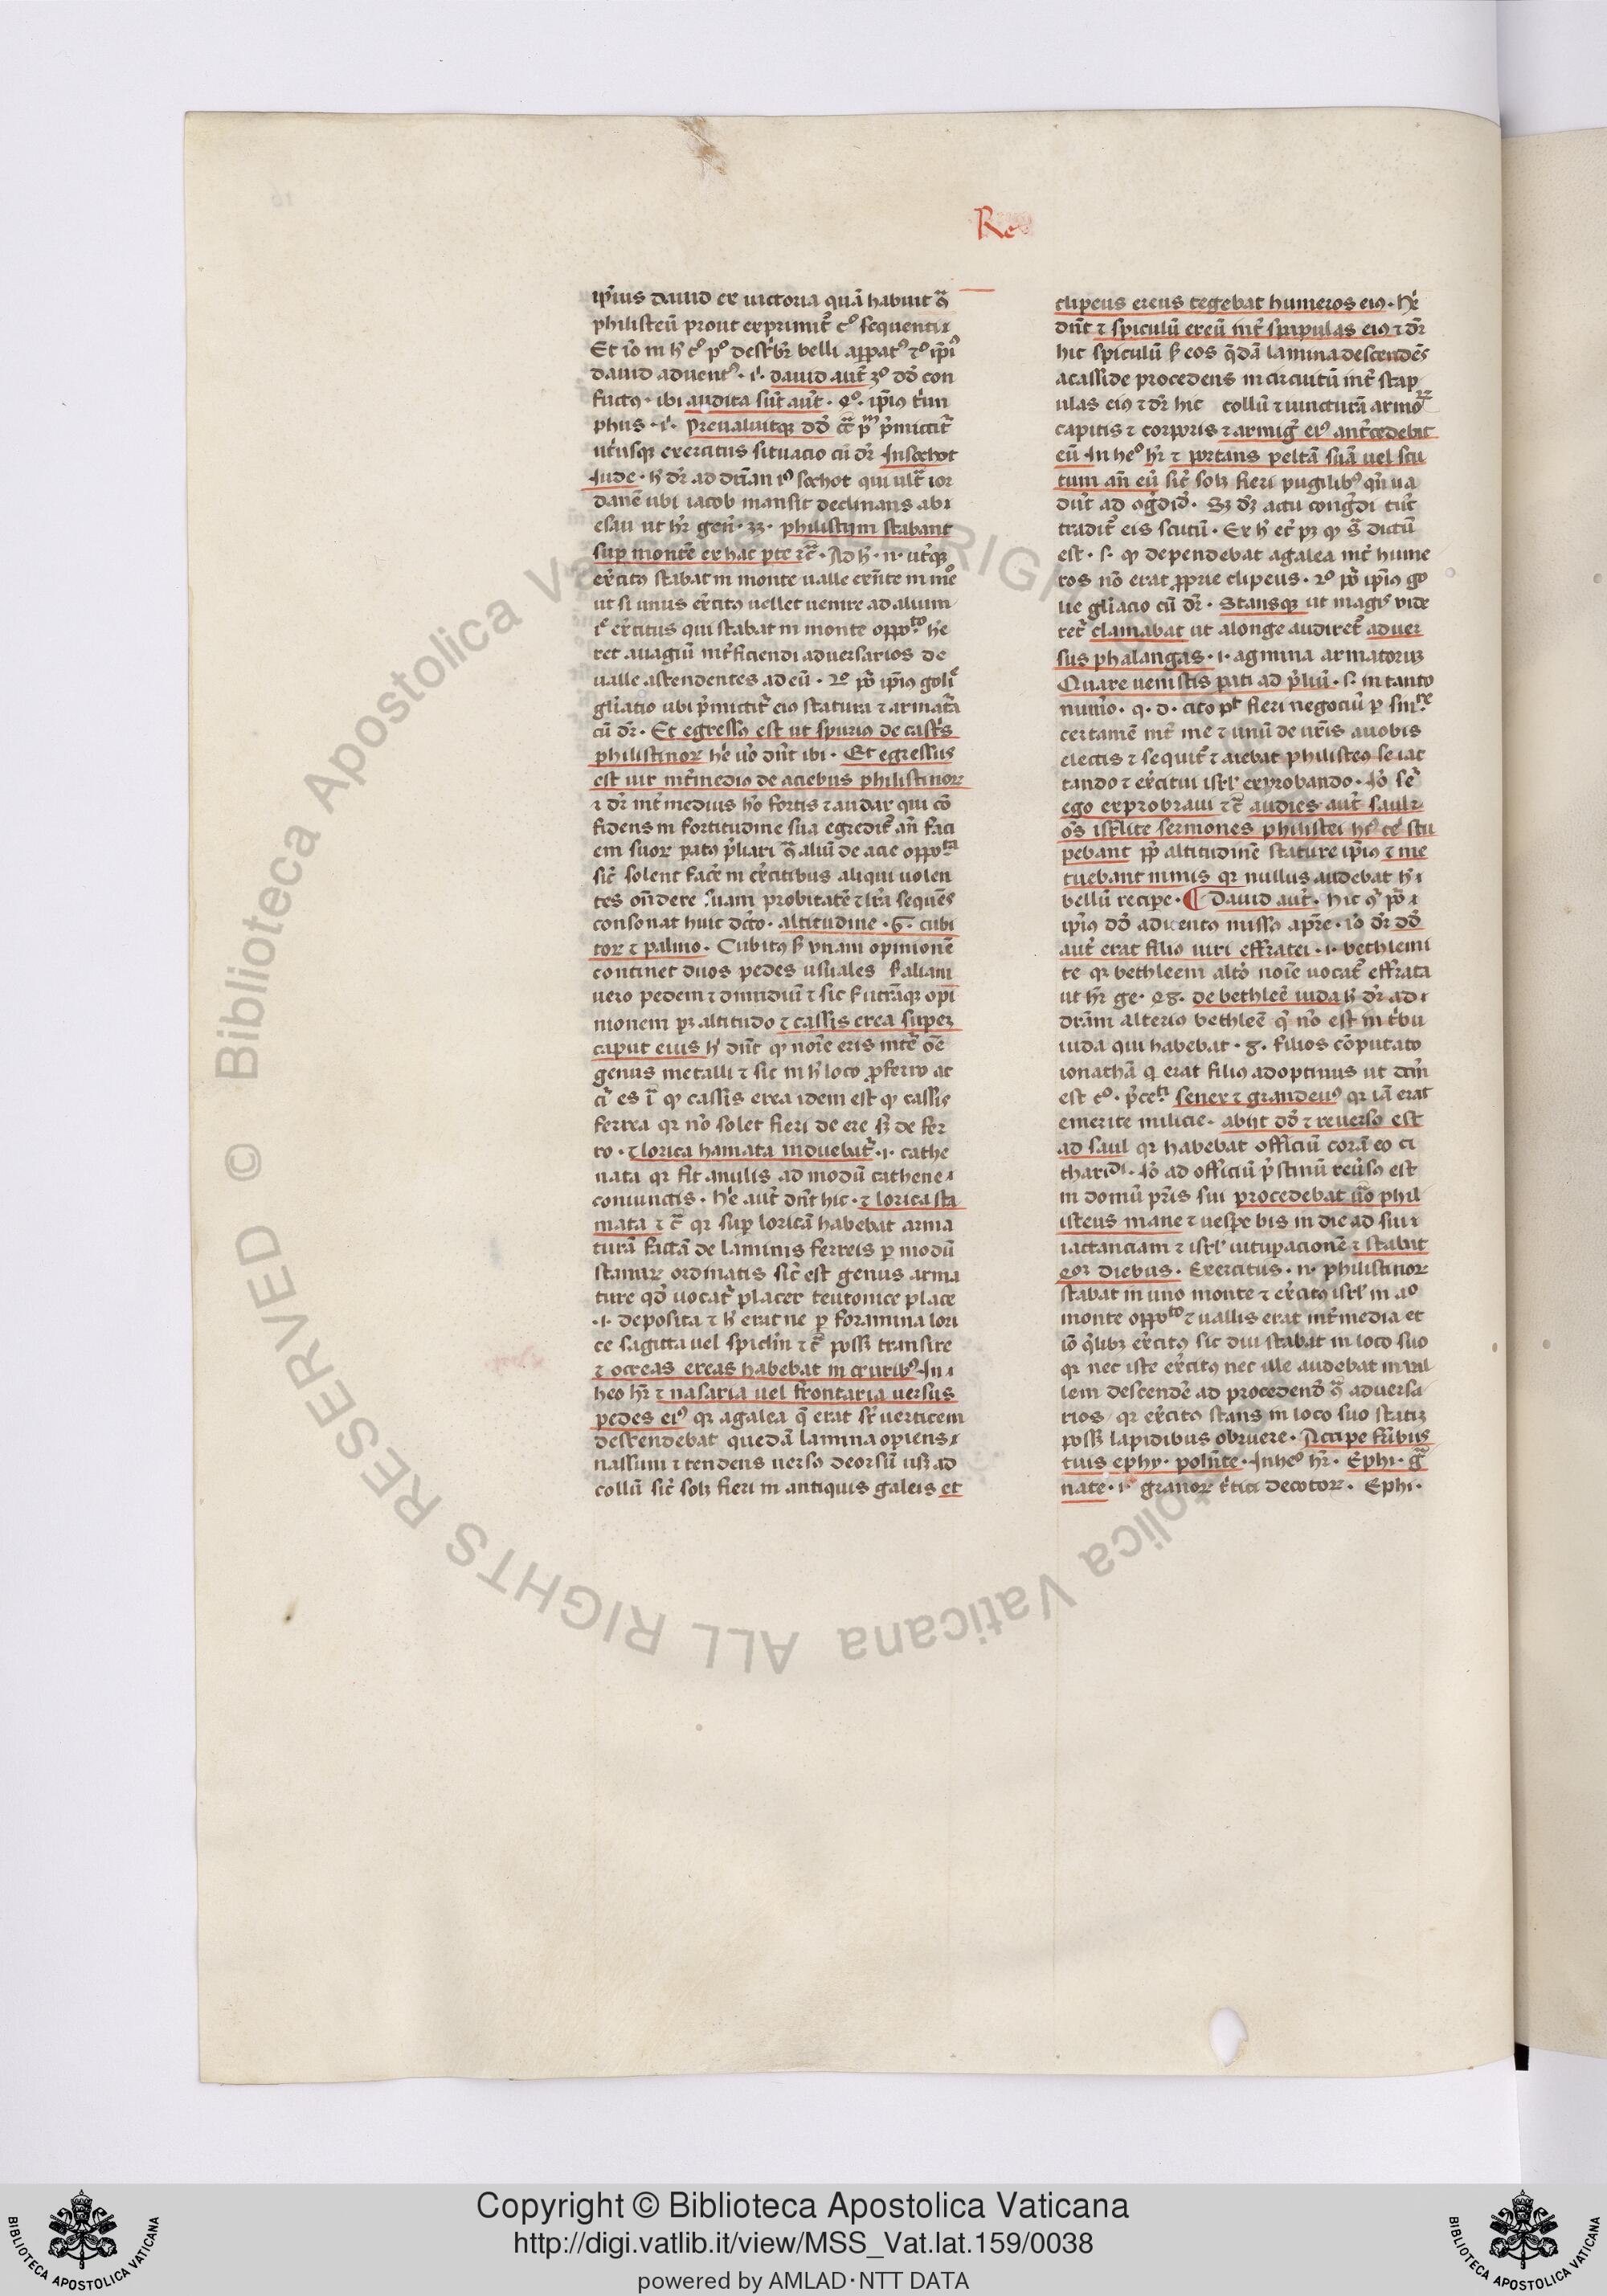 Re
ip̄ius dauid ex uictoria quā habuit 9ͣ
philisteū prout exprimit᷑ c° sequenti
Et iō in h̄ c° p° desc͛ibit᷑ belli apparat9 2° ip̄i9
dauid aduent9 · i᷑ · dauid aūt 3° dd̄ con
flictus · ibi audita sūt aūt · 4° · ip̄ius t͛iun
phus · i᷑ · Preualuitqꝫ dd̄ c̄ p᷑mittit᷑
ut͛iusqꝫ exercitus situacio cū dr̄ · In sochot
Iude · h̄ dr̄ ad dr̄iam sochot qui ult᷑ ior
danē ubi iacob mansit declinans ab
esau ut hr̄ gen̄ · 33 · philistijm stabant
sup montē ex hac pte ⁊c̄ · Ad h̄ · n · ut͛qꝫ
ex͛citus stabat in monte ualle exn̄te in me°
ut si unus ex͛citus uellet uenire ad alium
ex͛citus qui stabat in monte oppoᵗᵒ
ret auagiū int͛ficiendi aduersarios de
ualle ascendentes ad eū · 2° pōit ip̄ius goli
gliatio ubi p͛mittit᷑ eius statura ⁊ armat᷑a
cū dr̄ · Et egressus est uir spurius de cast͛s
philistinoꝝ he uo dn̄t ibi · Et egressus
est uir int͛medio de aciebus philistinoꝝ
⁊ dr̄ int͛medius ho fortis ⁊ audax qui cō
fidens in fortitudine sua egredit᷑ an̄ faci
em suoꝝ patus p͛liari 9ͣ aliū de acie oppoᵗᵃ
sic̄ solent face͛ in ex͛citibus aliqui uolen
tes ondere suam probitatē ⁊ lr̄a sequēs
consonat huic dc̄o · altitudine · 6 · cubi
toꝝ ⁊ palmo · Cubitus ẜ unam opinionē
continet duos pedes usuales ẜ aliam
uero pedem ⁊ dimidiū ⁊ sic ẜ utrāqꝫ opi
nionem pꝫ altitudo ⁊ cassis erea super
caput eius h̄ dn̄t qꝫ noīe eris int͛ oē
genus metalli ⁊ sic in h̄ loco p ferro ac
ci͛ es i᷑ qꝫ cassis erea idem est qꝫ cassis
ferrea qꝛ nō solet fieri de ere sꝫ de fer
ro · ⁊ lorica hamata induebat᷑ · i · cathe
nata qꝛ fit anulis ad modū cathene
coniunctis · He aūt dn̄t hic · ⁊ lorica sta
mata ⁊ c̄ qꝛ sup loricā habebat arma
turā factā de laminis ferreis p modū
stamaꝝ ordinatis sic̄ est genus arma
ture qd̄ uocat᷑ placer teutonice place
· i · deposita ⁊ h̄ erat ne p foramina lori
ce sagitta uel spiclm̄ ⁊ c̄ possꝫ transire
⁊ ocreas ereas habebat in cruribꝫ · In
heo hr̄ ⁊ nasaria uel frontaria uersus
pedes ei9 qꝛ agalea q̄ erat sr̄ uerticem
descendebat quedā lamina opiens
nassum ⁊ tendens uersus deorsū usꝫ ad
collū sic̄ solꝫ fieri in antiquis galeis et
clipeus ereus tegebat humeros eius · he
dn̄t ⁊ spiculū ereū int͛ scapulas eius ⁊ dr̄
hic spiculū ẜ eos q̄dā lamina descendēs
acasside procedens in circuitū int͛ scap
ulas eius ⁊ dr̄ hic collū ⁊ iuncturā armoꝝ
capitis ⁊ corporis ⁊ armig͛ ei9 ant͛cedebat
eū In he° hr̄ ⁊ portans peltā suā uel scu
tum an̄ eū sic̄ solꝫ fieri pugilibꝫ qn̄ ua
dūt ad 9g͛did᷑ · Sꝫ dꝫ actu cong͛di tūc
tradit᷑ eis scutū · Ex h̄ ec̄ pꝫ qꝫ sͣ dictū
est · s · qꝫ dependebat agalea int͛ hume
ros nō erat pprie clipeus · 2° pōit ip̄ius go
lie gliacio cū dr̄ · Stansqꝫ ut magis uide
ret᷑ clamabat ut alonge audiret᷑ aduer
sus phalangas · i · agmina armatorum
Quare uenistis pati ad p͛liū · s · in tanto
num͛o · q · d · cito pᵗ fieri negociū p sm̄
certamē int͛ me ⁊ unū de ur̄is auobis
electis ⁊ sequit᷑ ⁊ aiebat philisteus se iac
tando ⁊ ex͛citui isrl̄ exprobando · Iō
ego exprobraui ⁊c̄ audies aūt saul ⁊
oēs isrl̄ite sermones philistei h9 stu
pebant pp̄ altitudinē stature ip̄ius ⁊ me
tuebant nimis qꝛ nullus audebat h̄
bellū recipe · ¶ Dauid aūt · hic 9͛ pōit
ip̄ius dd̄ aduentus missus apr̄e · iō dr̄ dd̄
aūt erat filius uiri effratei · i · bethlemi
te qꝛ bethleem alio noīe uocat᷑ effrata
ut hr̄ ge · 48 · de bethleē iuda h̄ dr̄ ad
dr̄am alterius bethleē q͛ nō est in t͛bu
iuda qui habebat · 8 · filios cōputato
ionathā q erat filius adoptiuus ut dc̄m
est c° · p͛ceᵗⁱ senex ⁊ grandeu9 qꝛ iā erat
emerite milicie · abijt dd̄ ⁊ reuersus est
ad saul qꝛ habebat officiū corā eo ci
tharid͛ · Iō ad officiū p͛stinū reu͛sus est
in domū pr̄is sui procedebat uo phil
isteus mane ⁊ uespe bis in die ad sui
iactanciam ⁊ isrl̄ uitupacionē ⁊ stabat
40ꝫ diebus · Exercitus · n · philistinoꝝ
stabat in uno monte ⁊ ex͛citus isrl̄ in a°
monte oppoᵗᵒ ⁊ uallis erat int͛media et
iō q͛libꝫ ex͛citus sic diu stabat in loco suo
qꝛ nec iste ex͛citus nec ille audebat in ual
lem descende͛ ad procedend̄ 9ͣ aduersa
rios qꝛ ex͛citus stans in loco suo statim
possꝫ lapidibus obruere · Accipe fr̄ibus
tuis ephy · poln̄te · Inhe° hr̄ · Ephi · gͣ
nate · i · granoꝝ t͛tici decotoꝝ · Ephi ·
Biblioteca Apostolica Vaticana ALL RIGHTS RESERVED ©
Copyright © Biblioteca Apostolica Vaticana
http://digi.vatlib.it/view/MSS_Vat.lat.159/0038
powered by AMLAD·NTT DATA
BIBLIOTECA APOSTOLICA VATICANA
BIBLIOTECA APOSTOLICA VATICANA